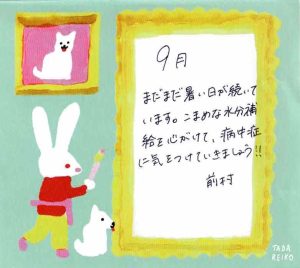 9月
まだまだ暑い日が続いて
います。こまめな水分補
給を心がけて、病中症
に気をつけていきましょう!!
前村
TADA
REIKO